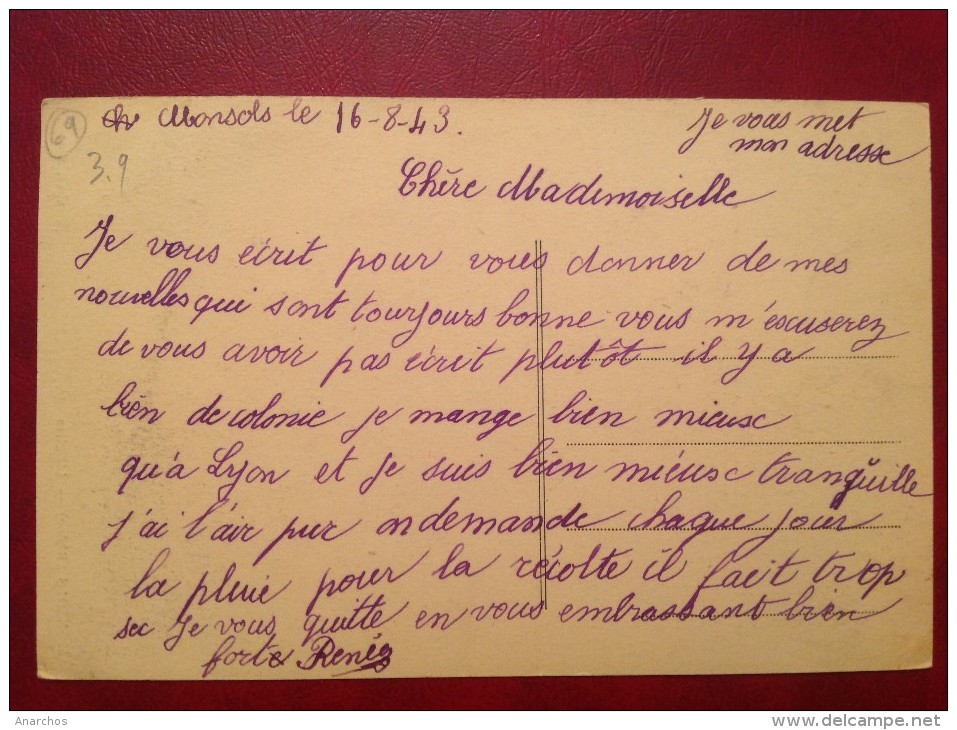 69
3.9
Monsols le 16-8-43.
Je vous met
mon adresse
Chère Mademoiselle
Je vous écrit pour vous donner de mes
nouvelles qui sont toujours bonne vous m'escuserez
de vous avoir pas écrit plutôt il y a
bien de colonie je mange bien mieux
qu'à Lyon et je suis bien mieux tranquille
j'ai l'air pur on demande chaque jour
la pluie pour la récolte il fait trop
sec Je vous quitte en vous embrassant bien
forte Renée
Anarchos
www.delcampe.net